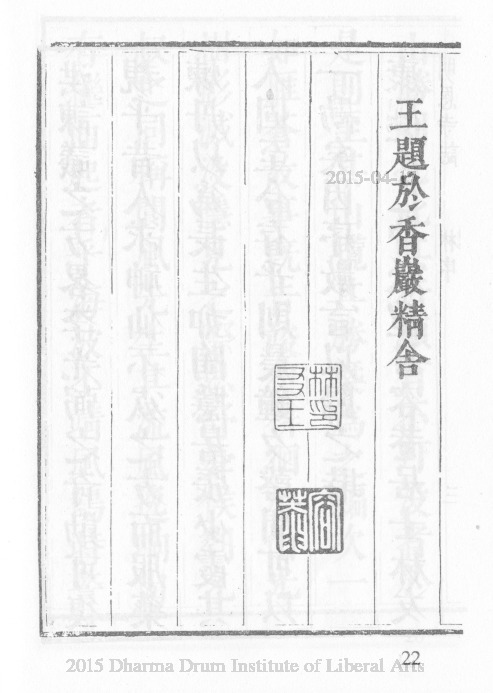 王題於香巖精舍
林印
友王
2015-04-
22
2015 Dharma Drum Institute of Liberal Arts